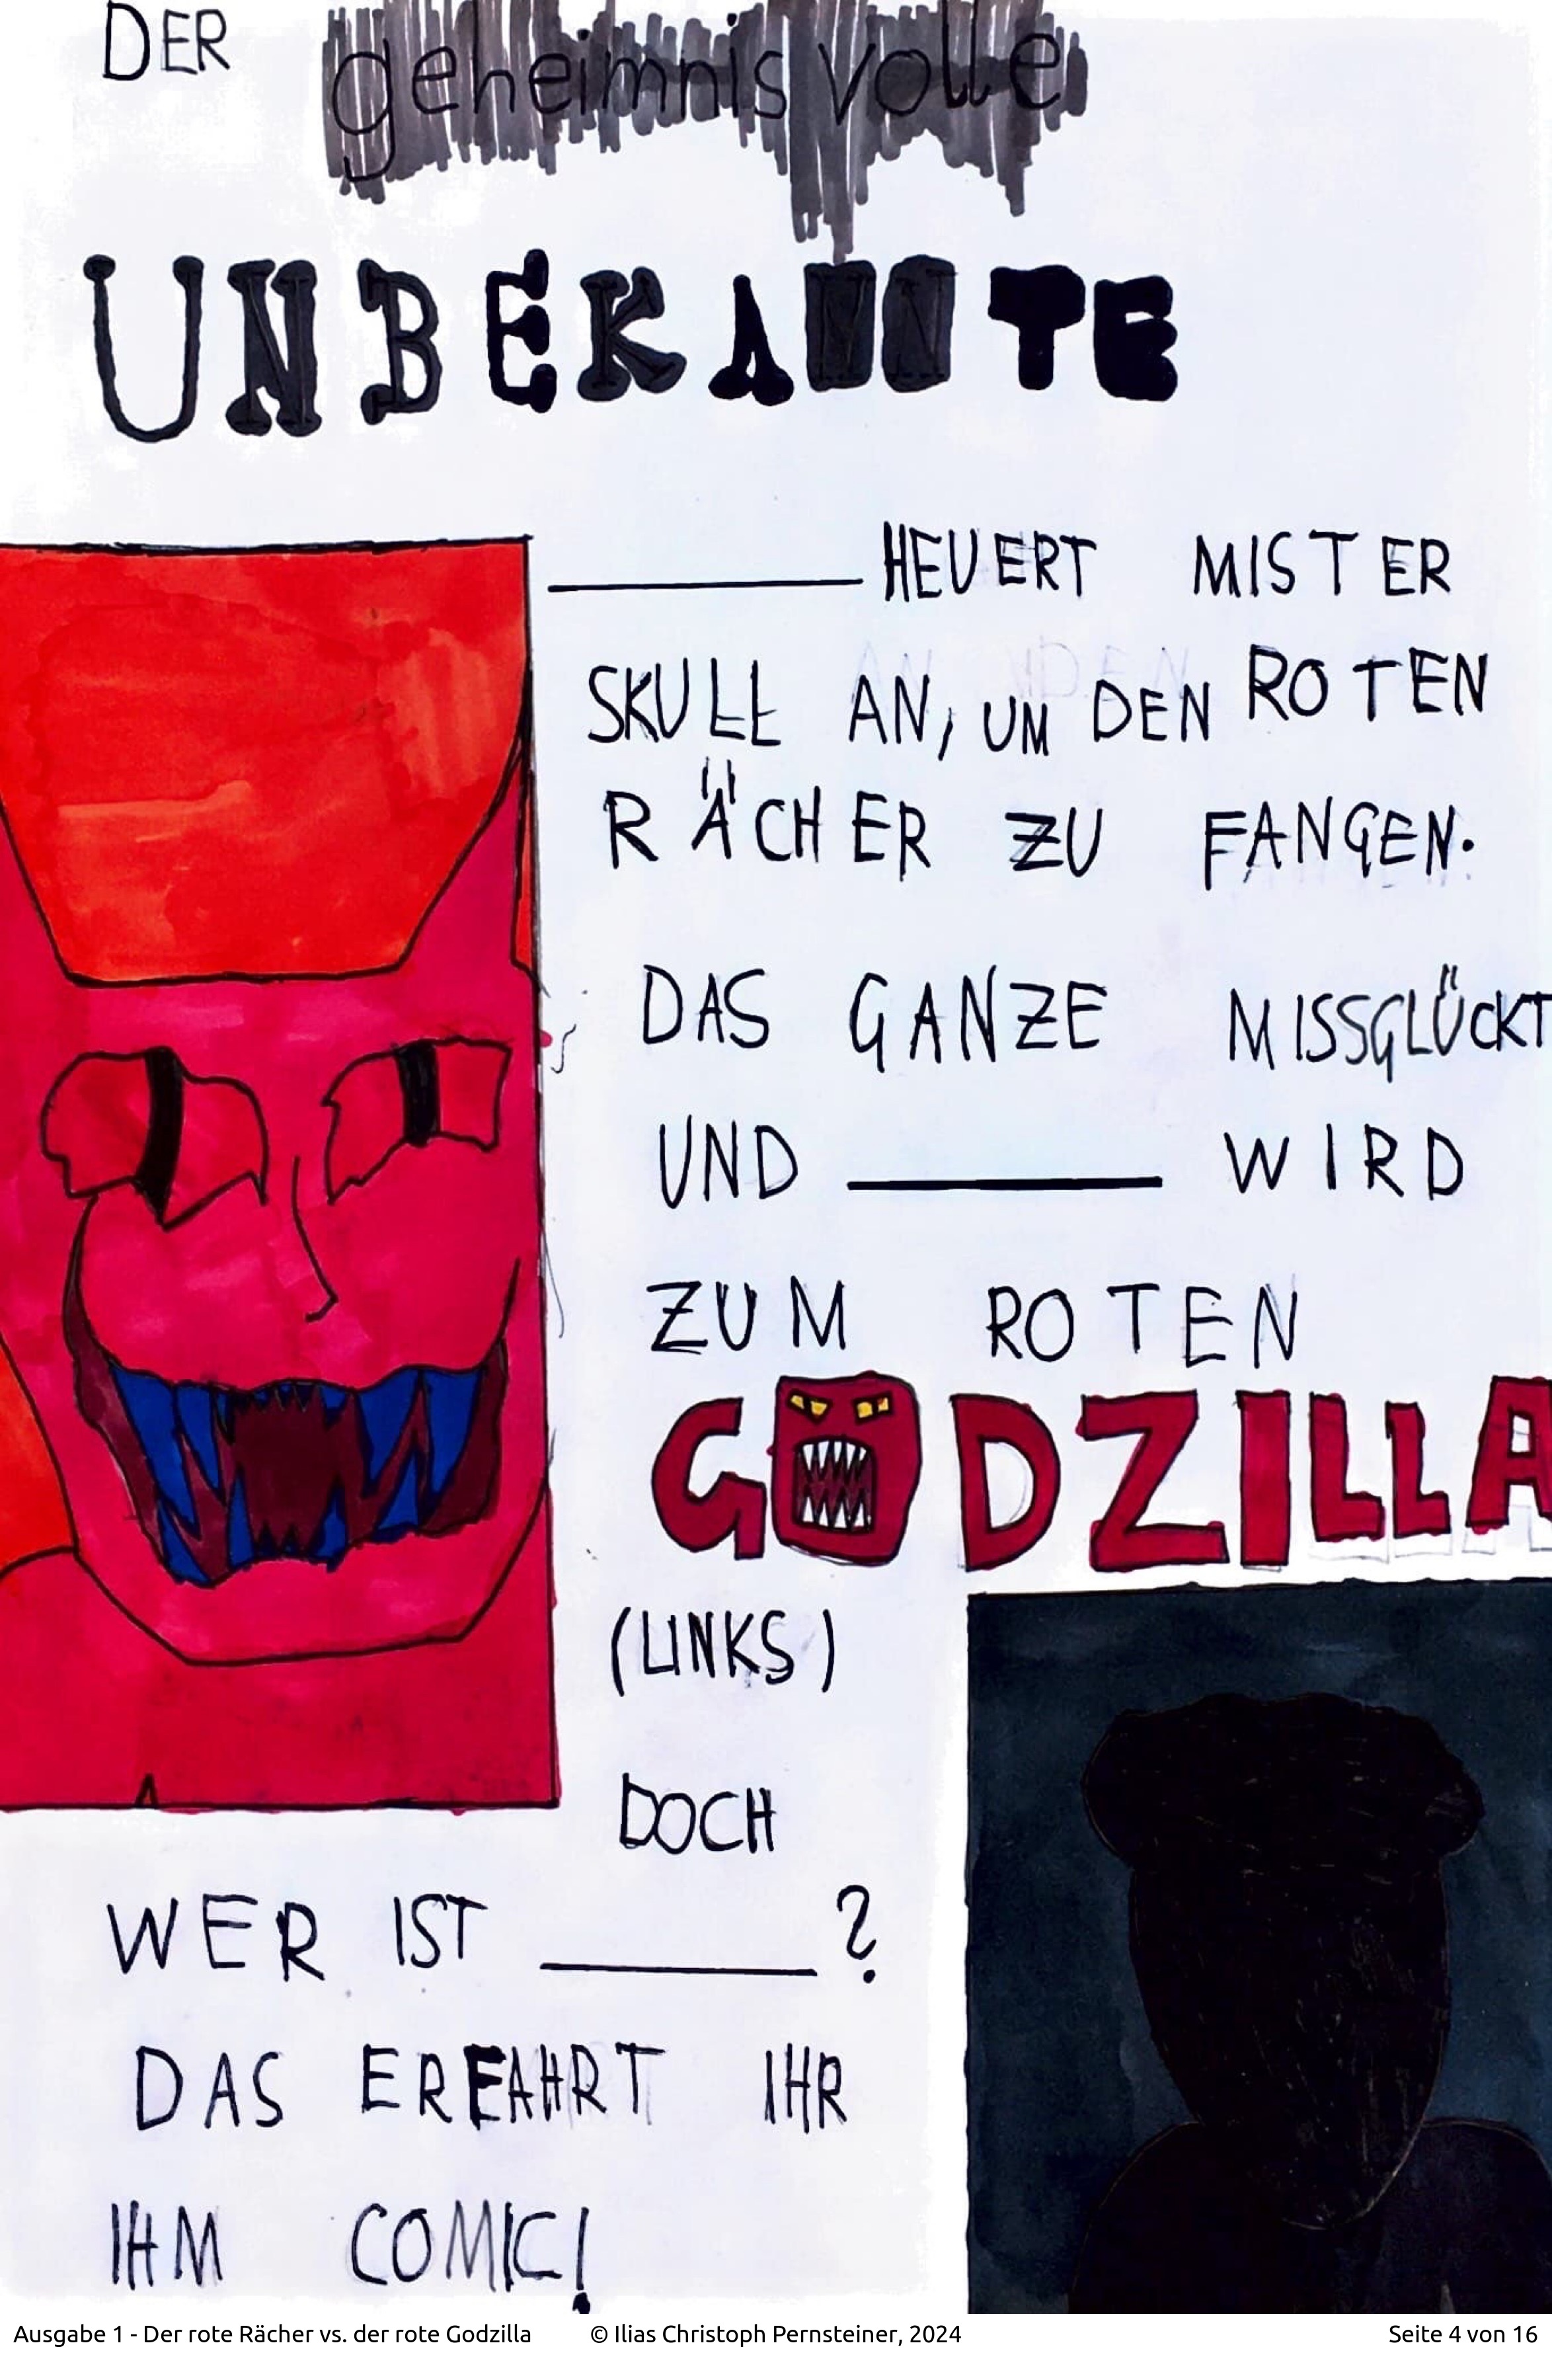 DER geheimnisvolle
UNBEKANNTE
________ HEUERT MISTER
SKULL AN, UM DEN ROTEN
RÄCHER ZU FANGEN.
DAS GANZE MISSGLÜCKT
UND ________ WIRD
ZUM ROTEN
GODZILLA
(LINKS)
DOCH
WER IST ________ ?
DAS ERFAHRT IHR
IHM COMIC!
Ausgabe 1 - Der rote Rächer vs. der rote Godzilla © Ilias Christoph Pernsteiner, 2024 Seite 4 von 16